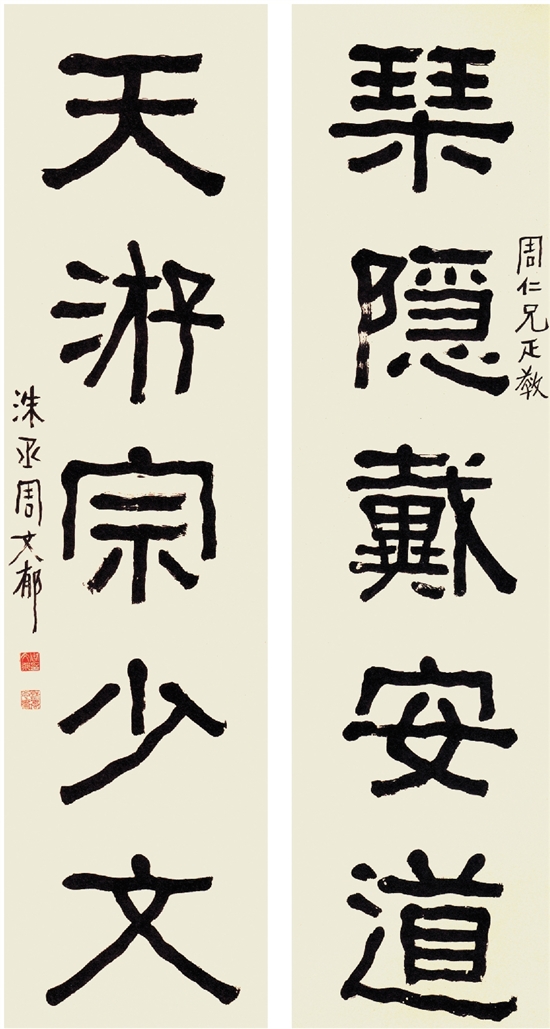 周仁兄正教
琹隱戴安道
天游宗少文
洙丞周文郁